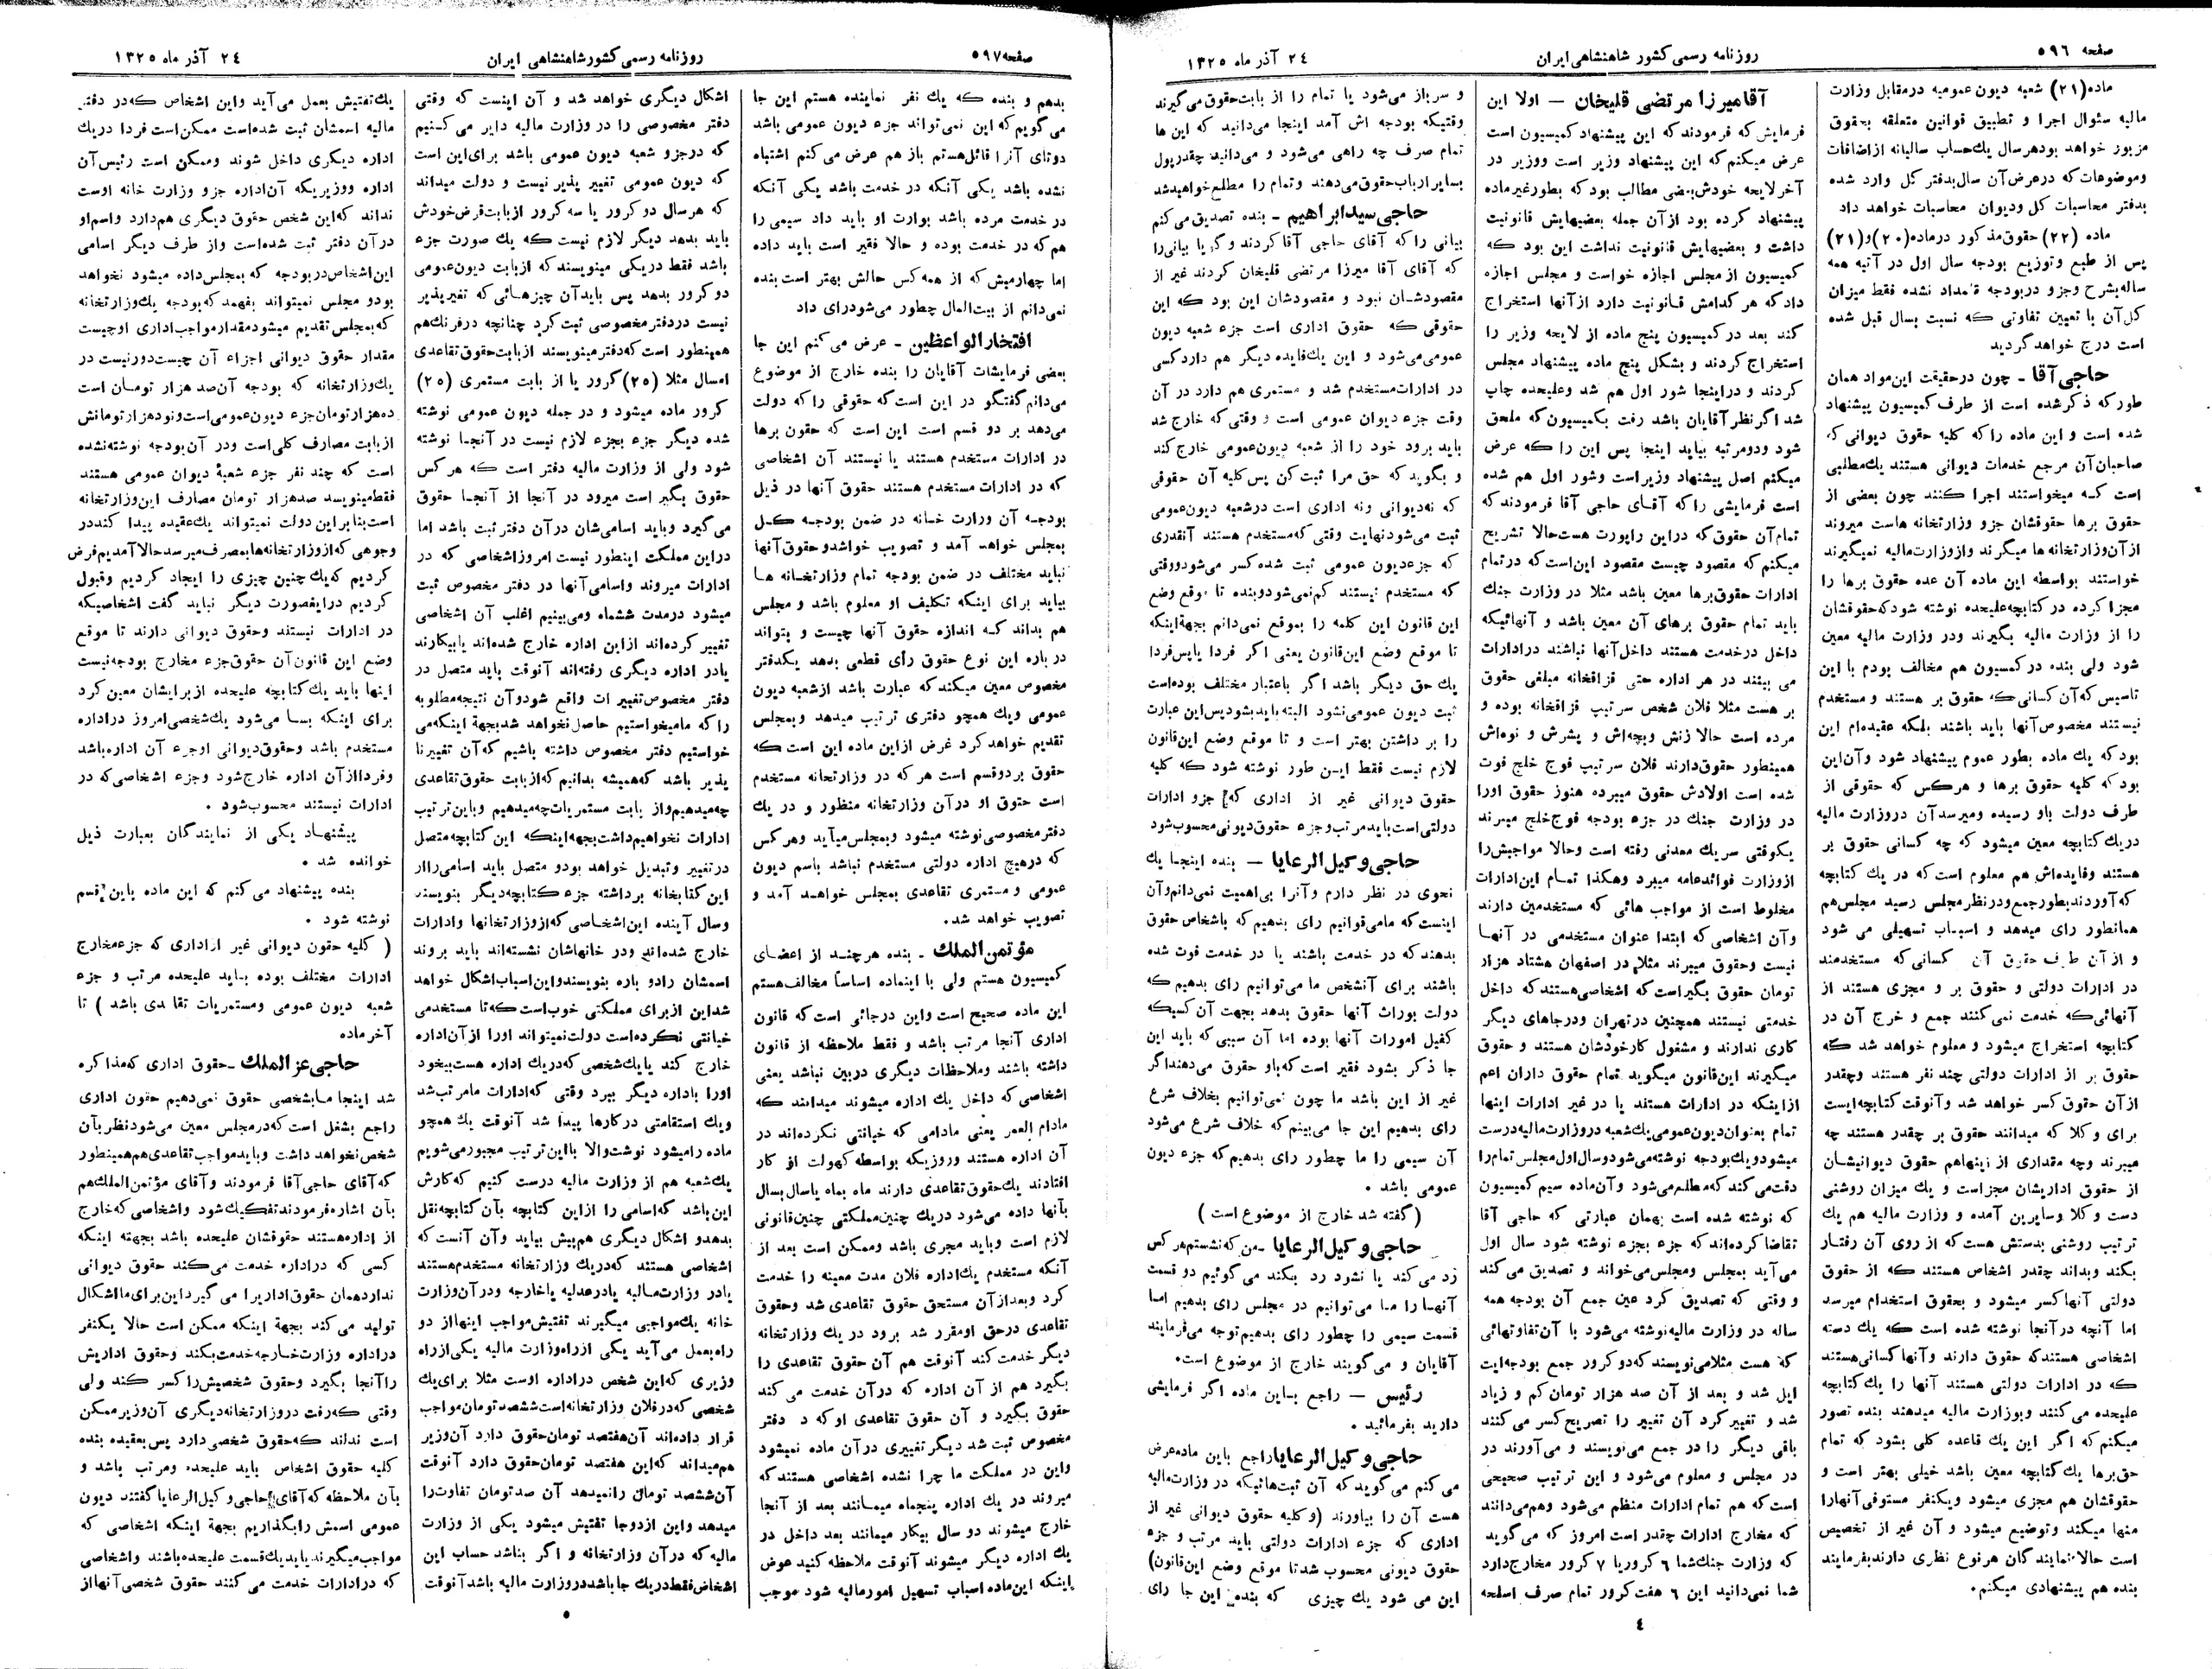 صفحه ٥٩٦
روزنامه رسمی کشور شاهنشاهی ایران
٢٤ آذر ماه ١٣٢٥
ماده(٢١) شعبه دیون عمومیه درمقابل وزارت
مالیه سئوال اجرا و تطبیق قوانین متعلقه بحقوق
مزبور خواهد بودهرسال یك‌حساب سالیانه ازاضافات
وموضوعات که درعرض‌آن سال‌بدفتر کل وارد شده
بدفتر محاسبات کل ودیوان محاسبات خواهد داد
ماده (٢٢) حقوق‌مذکور درماده(٢٠)و(٢١)
پس از طبع وتوزیع بودجه سال اول در آتیه همه
ساله‌بشرح وجزو دربودجه قلمداد نشده فقط میزان
کل‌آن با تعیین تفاوتی که نسبت بسال قبل شده
است درج خواهدگردید
حاجی‌آقا ـ چون درحقیقت این‌مواد همان
طورکه ذکرشده است از طرف کمیسیون پیشنهاد
شده است و این ماده راکه کلیه حقوق دیوانی که
صاحبان‌آن مرجع خدمات دیوانی هستند یك‌مطلبی
است که میخواستند اجرا کنند چون بعضی از
حقوق برها حقوقشان جزو وزارتخانه هاست میروند
ازآن‌وزارتخانه ها میگیرند وازوزارت‌مالیه نمیگیرند
خواستند بواسطه این ماده آن عده حقوق برها را
مجزا کرده در کتابچه‌علیحده نوشته شودکه‌حقوقشان
را از وزارت مالیه بگیرند ودر وزارت مالیه معین
شود ولی بنده درکمسیون هم مخالف بودم با این
تاسیس که‌آن کسانی‌که حقوق بر هستند و مستخدم
نیستند مخصوص‌آنها باید باشند بلکه عقیده‌ام این
بودکه یك ماده بطور عموم پیشنهاد شود وآن‌این
بودکه کلیه حقوق برها و هرکس که حقوقی از
طرف دولت باو رسیده ومیرسدآن دروزارت مالیه
دریك کتابچه معین میشود که چه کسانی حقوق بر
هستند وفایده‌اش هم معلوم است‌که در یك کتابچه
که‌آوردندبطورجمع‌ودرنظرمجلس رسید مجلس‌هم
همانطور رای میدهد و اسباب تسهیلی می شود
و ازآن طرف حقوق آن کسانی‌که مستخدمند
در ادارات دولتی و حقوق بر و مجزی هستند از
آنهائی‌که خدمت نمی‌کنند جمع و خرج آن در
کتابچه استخراج میشود و معلوم خواهد شد که
حقوق بر از ادارات دولتی چند نفر هستند وچقدر
ازآن حقوق کسر خواهد شد وآنوقت کتابچه‌ایست
برای وکلا که میدانند حقوق بر چقدر هستند چه
میبرند وچه مقداری از زینهاهم حقوق دیوانیشان
از حقوق اداریشان مجزاست و یك میزان روشنی
دست وکلا وسایرین آمده و وزارت مالیه هم یك
ترتیب روشنی بدستش هست‌که از روی آن رفتار
بکند وبداند چقدر اشخاص هستند که از حقوق
دولتی آنهاکسر میشود و بحقوق استخدام میرسد
اما آنچه درآنجا نوشته شده است که یك دسته
اشخاصی هستندکه حقوق دارند وآنهاکسانی‌هستند
که در ادارات دولتی هستند آنها را یك‌کتابچه
علیحده می‌کنند وبوزارت مالیه میدهند بنده تصور
میکنم‌که اگر این یك قاعده کلی بشود که تمام
حق‌برها یك‌کتابچه معین باشد خیلی بهتر است و
حقوقشان هم مجزی میشود ویکنفر مستوفی‌آنهارا
منها میکند وتوضیع میشود و آن غیر از تخصیص
است حالا نمایندگان هرنوع نظری دارندبفرمایند
بنده هم پیشنهادی میکنم.
آقامیرزا مرتضی قلیخان — اولا این
فرمایش‌که فرمودندکه این پیشنهادکمیسیون است
عرض میکنم‌که این پیشنهاد وزیر است ووزیر در
آخرلایحه خودش‌بعضی مطالب بودکه بطورغیرماده
پیشنهاد کرده بود ازآن جمله بعضیهایش قانونیت
داشت و بعضیهایش قانونیت نداشت این بود که
کمیسیون از مجلس اجازه خواست و مجلس اجازه
دادکه هرکدامش قانونیت دارد ازآنها استخراج
کند بعد درکمیسیون پنج ماده از لایحه وزیر را
استخراج کردند و بشکل پنج ماده پیشنهاد مجلس
کردند و دراینجا شور اول هم شد وعلیحده چاپ
شد اگرنظرآقایان باشد رفت بکمیسیون‌که ملحق
شود ودومرتبه بیاید اینجا پس این را که عرض
میکنم اصل پیشنهاد وزیراست وشور اول هم شده
است فرمایشی راکه آقای حاجی آقا فرمودندکه
تمام‌آن حقوق‌که دراین راپورت هست‌حالا تشریح
میکنم‌که مقصود چیست مقصود این‌است‌که درتمام
ادارات حقوق‌برها معین باشد مثلا در وزارت جنك
باید تمام حقوق برهای آن معین باشد و آنهائیکه
داخل درخدمت هستند داخل‌آنها نباشند درادارات
می بینند در هر اداره حتی قزاقخانه مبلغی حقوق
بر هست مثلا فلان شخص سرتیپ قزاقخانه بوده و
مرده است حالا زنش وبچه‌اش و پسرش و نوه‌اش
همینطور حقوق‌دارند فلان سرتیپ فوج خلج فوت
شده است اولادش حقوق میبرده هنوز حقوق اورا
در وزارت جنك در جزء بودجه فوج‌خلج میبرند
یکوقتی سریك معدنی رفته است وحالا مواجبش‌را
ازوزارت فوائدعامه میبرد وهکذا تمام این‌ادارات
مخلوط است از مواجب هائی که مستخدمین دارند
وآن اشخاصی‌که ابتدا عنوان مستخدمی در آنها
نیست وحقوق میبرند مثلا در اصفهان هشتاد هزار
تومان حقوق بگیراست‌که اشخاصی‌هستندکه داخل
خدمتی نیستند همچنین درتهران ودرجاهای دیگر
کاری ندارند و مشغول کارخودشان هستند و حقوق
میگیرند این‌قانون میگوید تمام حقوق داران اعم
ازاینکه در ادارات هستند یا در غیر ادارات اینها
تمام بعنوان‌دیون‌عمومی‌یك‌شعبه دروزارت‌مالیه‌درست
میشودویك‌بودجه نوشته‌می‌شودوسال‌اول‌مجلس تمام‌را
دقت‌می‌کندکه‌مطلع‌می‌شود وآن‌ماده سیم کمیسیون
که نوشته شده است بهمان عبارتی که حاجی آقا
تقاضاکرده‌اندکه جزء بجزء نوشته شود سال اول
می‌آید بمجلس ومجلس‌می‌خواند و تصدیق می‌کند
و وقتی که تصدیق کرد عین جمع آن بودجه همه
ساله در وزارت مالیه‌نوشته می‌شود با آن‌تفاوتهائی
که هست مثلامی‌نویسندکه‌دوکرور جمع بودجه‌ایت
ایل شد و بعد از آن صد هزار تومان‌کم و زیاد
شد و تغییرکرد آن تغییر را تصریح‌کسر می‌کنند
باقی دیگر را در جمع می‌نویسند و می‌آورند در
در مجلس و معلوم می‌شود و این ترتیب صحیحی
است‌که هم تمام ادارات منظم می‌شود وهم‌می‌دانند
که مخارج ادارات چقدر است امروز که می‌گوید
که وزارت جنك‌شما ٦ کروریا ٧ کرور مخارج‌دارد
شما نمی‌دانید این ٦ هفت‌کرور تمام صرف اسلحه
و سرباز می‌شود یا تمام را از بابت‌حقوق‌می‌گیرند
وقتیکه بودجه اش آمد اینجا می‌دانید که این ها
تمام صرف چه راهی می‌شود و می‌دانید چقدرپول
بسایرارباب‌حقوق‌می‌دهند وتمام را مطلع‌خواهیدشد
حاجی‌سیدابراهیم ـ بنده تصدیق می‌کنم
بیانی راکه آقای حاجی آقاکردند وگویا بیانی‌را
که آقای آقا میرزا مرتضی قلیخان کردند غیر از
مقصودشان نبود و مقصودشان این بود که این
حقوقی که حقوق اداری است جزء شعبه دیون
عمومی‌می‌شود و این یك‌فایده دیگر هم داردکسی
در ادارات‌مستخدم شد و مستمری هم دارد در آن
وقت جزء دیوان عمومی است و وقتی که خارج شد
باید برود خود را از شعبه دیون‌عمومی خارج کند
و بگوید که حق مرا ثبت‌کن پس‌کلیه آن حقوقی
که نه‌دیوانی ونه اداری است درشعبه دیون‌عمومی
ثبت می‌شودنهایت وقتی که‌مستخدم هستند آنقدری
که جزءدیون عمومی ثبت شده‌کسر می‌شودووقتی
که مستخدم نیستند کم‌نمی‌شودوبنده تا موقع وضع
این قانون این کلمه را بموقع نمی‌دانم بجهةاینکه
تا موقع وضع این‌قانون یعنی اگر فردا یاپس‌فردا
یك حق دیگر باشد اگر باعتبار مختلف بوده‌است
ثبت دیون عمومی‌نشود البته بایدبشودپس‌این عبارت
را بر داشتن بهتر است و تا موقع وضع این‌قانون
لازم نیست فقط این طور نوشته شود که کلیه
حقوق دیوانی غیر از اداری که جزو ادارات
دولتی‌است‌بایدمرتب‌وجزء حقوق‌دیونی‌محسوب‌شود
حاجی‌وکیل‌الرعایا — بنده اینجا یك
نحوی در نظر دارم وآنرا بی‌اهمیت نمی‌دانم‌وآن
اینست‌که مامی‌توانیم رای بدهیم که باشخاص حقوق
بدهندکه در خدمت باشند یا در خدمت فوت شده
باشند برای آنشخص ما می‌توانیم رای بدهیم‌که
دولت بوراث آنها حقوق بدهد بجهت آن‌کسیکه
کفیل امورات آنها بوده اما آن سیبی که باید این
جا ذکر بشود فقیر است‌که‌باو حقوق می‌دهنداگر
غیر از این باشد ما چون نمی‌توانیم بخلاف شرع
رای بدهیم این جا می‌بینم‌که خلاف شرع می‌شود
آن سیمی را ما چطور رای بدهیم‌که جزء دیون
عمومی باشد .
(گفته شد خارج از موضوع است )
حاجی‌وکیل‌الرعایا ـ من‌که‌نشستم‌هرکس
رد می‌کند یا نشرد رد بکند می گوئیم دو قسمت
آنها را ما می‌توانیم در مجلس رای بدهیم اما
قسمت سیمی را چطور رای بدهیم‌توجه می‌فرمایند
آقایان و می‌گویند خارج از موضوع است.
رئیس — راجع باین ماده اگر فرمایشی
دارید بفرمائید .
حاجی‌وکیل‌الرعایاراجع باین ماده‌عرض
می کنم می گویدکه آن ثبت‌هائیکه در وزارت‌مالیه
هست آن را بیاورند (وکلیه حقوق دیوانی غیر از
اداری که جزء ادارات دولتی باید مرتب و جزء
حقوق دیونی محسوب شدتا موقع وضع این‌قانون)
این می شود یك چیزی که بنده این جا رای
٤
صفحه٥٩٧
روزنامه رسمی کشورشاهنشاهی ایران
٢٤ آذر ماه ١٣٢٥
بدهم و بنده که یك نفر نماینده هستم این جا
می گویم‌که این نمی‌تواند جزء دیون عمومی باشد
دوتای آنرا قائل‌هستم باز هم عرض می‌کنم اشتباه
نشده باشد یکی آنکه در خدمت باشد یکی آنکه
در خدمت مرده باشد بوارث او باید داد سیمی را
هم‌که در خدمت بوده و حالا فقیر است باید داده
اما چهارمیش‌که از همه‌کس حالش بهتر است بنده
نمی‌دانم از بیت‌المال چطور می‌شودرای داد
افتخارالواعظین ـ عرض می‌کنم این جا
بعضی فرمایشات آقایان را بنده خارج از موضوع
می‌دانم‌گفتگو در این است‌که حقوقی راکه دولت
می‌دهد بر دو قسم است این است که حقون برها
در ادارات مستخدم هستند یا نیستند آن اشخاصی
که در ادارات مستخدم هستند حقوق آنها در ذیل
بودجه آن وزارت خانه در ضمن بودجه کل
بمجلس خواهد آمد و تصویب خواشدوحقوق‌آنها
نباید مختلف در ضمن بودجه تمام وزارتخانه ها
بیاید برای اینکه تکلیف او معلوم باشد و مجلس
هم بداند که اندازه حقوق آنها چیست و بتواند
درباره این نوع حقوق رأی قطعی بدهد یکدفتر
مخصوص معین میکندکه عبارت باشد ازشعبه دیون
عمومی ویك همچو دفتری ترتیب میدهد وبمجلس
تقدیم خواهدکرد غرض ازاین ماده این است که
حقوق بردوقسم است هرکه در وزارتخانه مستخدم
است حقوق او درآن وزارتخانه منظور و در یك
دفترمخصوصی‌نوشته میشود وبمجلس‌میآید وهرکس
که درهیچ اداره دولتی مستخدم نباشد باسم دیون
عمومی و مستمری تقاعدی بمجلس خواهد آمد و
تصویب خواهد شد.
مؤتمن‌الملك ـ بنده هرچند از اعضای
کمیسیون هستم ولی با اینماده اساساً مخالف‌هستم
این ماده صحیح است واین درجائی است‌که قانون
اداری آنجا مرتب باشد و فقط ملاحظه از قانون
داشته باشند وملاحظات دیگری دربین نباشد یعنی
اشخاصی‌که داخل یك اداره میشوند میدانند که
مادام العمر یعنی مادامی که خیانتی نکرده‌اند در
آن اداره هستند وروزیکه بواسطه کهولت از کار
افتادند یك‌حقوق‌تقاعدی دارند ماه بماه یاسال‌بسال
بآنها داده می‌شود دریك چنین‌مملکتی چنین‌قانونی
لازم است وباید مجری باشد وممکن است بعد از
آنکه مستخدم یك‌اداره فلان مدت معینه را خدمت
کرد وبعدازآن مستحق حقوق تقاعدی شد وحقوق
تقاعدی درحق اومقرر شد برود در یك وزارتخانه
دیگر خدمت‌کند آنوقت هم آن حقوق تقاعدی را
بگیرد هم از آن اداره که درآن خدمت می کند
حقوق بگیرد و آن حقوق تقاعدی اوکه د دفتر
مخصوص ثبت شد دیگرتغییری درآن ماده نمیشود
واین در مملکت ما چرا نشده اشخاصی هستندکه
میروند در یك اداره پنجماه میمانند بعد از آنجا
خارج میشوند دو سال بیکار میمانند بعد داخل در
یك اداره دیگر میشوند آنوقت ملاحظه کنید عوض
اینکه این‌ماده‌اسباب تسهیل امورمالیه شود موجب
اشکال دیگری خواهد شد و آن اینست که وقتی
دفتر مخصوصی را در وزارت مالیه دایر می‌کنیم
که درجزو شعبه دیون عمومی باشد برای‌این است
که دیون عمومی تغییر پذیر نیست و دولت میداند
که هرسال دو کرور یا سه کرور ازبابت‌قرض‌خودش
باید بدهد دیگر لازم نیست که یك صورت جزء
باشد فقط دریکی مینویسندکه ازبابت دیون‌عمومی
دوکرور بدهد پس بایدآن چیزهائی‌که تغیرپذیر
نیست دردفترمخصوصی ثبت‌کرد چنانچه درفرنك‌هم
همینطور است‌که‌دفترمینویسند ازبابت‌حقوق‌تقاعدی
امسال مثلا (٢٥)کرور یا از بابت مستمری (٢٥)
کرور ماده میشود و در جمله دیون عمومی نوشته
شده دیگر جزء بجزء لازم نیست در آنجا نوشته
شود ولی از وزارت مالیه دفتر است که هرکس
حقوق بگیر است میرود در آنجا از آنجا حقوق
می‌گیرد وباید اسامی‌شان درآن دفترثبت باشد اما
دراین مملکت اینطور نیست امروزاشخاصی که در
ادارات میروند واسامی‌آنها در دفتر مخصوص ثبت
میشود درمدت ششماه ومی‌بینیم اغلب آن اشخاصی
تغییرکرده‌اند ازاین اداره خارج شده‌اند یابیکارند
یادر اداره دیگری رفته‌اند آنوقت باید متصل در
دفتر مخصوص‌تغییر ات واقع شودوآن نتیجه‌مطلوبه
راکه مامیخواستیم حاصل‌نخواهد شدبجهة اینکه‌می
خواستیم دفتر مخصوص داشته باشیم که‌آن تغییرنا
پذیر باشد که‌همیشه بدانیم‌که‌ازبابت حقوق‌تقاعدی
چه‌میدهیم‌واز بابت مستمریات‌چه‌میدهیم وباین‌ترتیب
ادارات نخواهیم‌داشت‌بجهه‌اینکه این‌کتابچه‌متصل
درتغییر وتبدیل خواهد بودو متصل باید اسامی‌رااز
این‌کتابخانه برداشته جزء کتابچه‌دیگر بنویسند
وسال آینده این‌اشخاصی که‌ازوزارتخانها وادارات
خارج شده‌اند ودر خانهاشان نشسته‌اند باید بروند
اسمشان رادو باره بنویسندواین‌اسباب‌اشکال خواهد
شداین ازبرای مملکتی خوب‌است‌که‌تا مستخدمی
خیانتی نکرده‌است دولت‌نمیتواند اورا ازآن‌اداره
خارج کند یایك‌شخصی که‌دریك اداره هست‌بیخود
اورا باداره دیگر ببرد وقتی که‌ادارات مامرتب‌شد
ویك استقامتی درکارها پیدا شد آنوقت یك همچو
ماده رامیشود نوشت‌والا بااین‌ترتیب مجبورمی‌شویم
یك‌شعبه هم از وزارت مالیه درست کنیم که‌کارش
این‌باشد که‌اسامی را ازاین کتابچه بآن کتابچه‌نقل
بدهدو اشکال دیگری هم‌پیش بیاید وآن آنست که
اشخاصی هستند که‌دریك وزارتخانه مستخدم‌هستند
یادر وزارت‌مالیه یادرعدلیه یاخارجه ودرآن‌وزارت
خانه یك‌مواجبی میگیرند تفتیش‌مواجب اینهااز دو
راه‌بعمل می‌آید یکی ازراه‌وزارت مالیه یکی‌ازراه
وزیری که‌این شخص دراداره اوست مثلا برای‌یك
شخصی که‌درفلان وزارتخانه‌است‌ششصدتومان‌مواجب
قرار داده‌اند آن‌هفتصد تومان‌حقوق دارد آن‌وزیر
هم‌میداند که‌این هفتصد تومان‌حقوق دارد آنوقت
آن‌ششصد تومان رانمیدهد آن صدتومان تفاوت‌را
میدهد واین ازدوجا تفتیش میشود یکی از وزارت
مالیه که درآن وزارتخانه و اگر بناشد حساب این
اشخاص‌فقط‌دریك جاباشددروزارت مالیه باشدآنوقت
یك‌تفتیش بعمل می‌آید واین اشخاص که‌در دفتر
مالیه اسمشان ثبت شده‌است ممکن‌است فردا دریك
اداره دیگری داخل شوند وممکن است رئیس‌آن
اداره ووزیریکه آن‌اداره جزو وزارت خانه اوست
نداند که‌این شخص حقوق دیگری هم‌دارد واسم‌او
درآن دفتر ثبت شده‌است واز طرف دیگر اسامی
این‌اشخاص‌دربودجه که بمجلس‌داده میشود نخواهد
بودو مجلس نمیتواند بفهمد که‌بودجه یك‌وزارتخانه
که‌بمجلس تقدیم میشودمقدارمواجب‌اداری اوچیست
مقدار حقوق دیوانی اجزاء آن چیست‌دورنیست در
یك‌وزارتخانه که بودجه آن‌صد هزار تومان است
ده‌هزارتومان‌جزء دیون‌عمومی‌است‌ونودهزارتومانش
ازبابت مصارف کلی‌است ودر آن‌بودجه نوشته‌نشده
است که چند نفر جزء شعبهٔ دیوان عمومی هستند
فقط‌مینویسد صدهزار تومان مصارف این‌وزارتخانه
است‌بنابراین دولت نمیتواند یك‌عقیده پیدا کنددر
وجوهی که‌ازوزارتخانه‌هابمصرف‌میرسدحالاآمدیم‌فرض
کردیم که‌یك‌چنین چیزی را ایجاد کردیم وقبول
کردیم دراینصورت دیگر نباید گفت اشخاصیکه
در ادارات نیستند وحقوق دیوانی دارند تا موقع
وضع این قانون‌آن حقوق‌جزء مخارج بودجه‌نیست
اینها باید یك‌کتابچه علیحده ازبرایشان معین‌کرد
برای اینکه بسا می‌شود یك‌شخصی‌امروز دراداره
مستخدم باشد وحقوق‌دیوانی اوجزء آن اداره‌باشد
وفرداازآن اداره خارج‌شود وجزء اشخاصی‌که در
ادارات نیستند محسوب‌شود .
پیشنهاد یکی از نمایندگان بعبارت ذیل
خوانده شد .
بنده پیشنهاد می کنم که این ماده باین قسم
نوشته شود .
( کلیه حقون دیوانی غیر ازاداری که جزءمخارج
ادارات مختلف بوده باید علیحده مرتب و جزء
شعبه دیون عمومی ومستمریات تقا عدی باشد ) تا
آخرماده
حاجی‌عزالملك ـ حقوق اداری که‌مذاکره
شد اینجا مابشخصی حقوق نمی‌دهیم حقون اداری
راجع بشغل است که‌درمجلس معین می‌شودنظربآن
شخص‌نخواهد داشت وبایدمواجب‌تقاعدی‌هم‌همینطور
که‌آقای حاجی‌آقا فرمودند وآقای مؤتمن‌الملك‌هم
بآن اشاره‌فرمودندتفکیك‌شود واشخاصی که‌خارج
از اداره‌هستند حقوقشان علیحده باشد بجهته اینکه
کسی که دراداره خدمت می‌کند حقوق دیوانی
نداردهمان حقوق‌اداریرا می گیرداین‌برای‌مااشکال
تولید می‌کند بجهة اینکه ممکن است حالا یکنفر
دراداره وزارت‌خارجه‌خدمت‌بکند وحقوق اداریش
راآنجا بگیرد وحقوق شخصیش‌راکسر کند ولی
وقتی که‌رفت دروزارتخانه‌دیگری آن‌وزیرممکن
است نداند که‌حقوق شخصی‌دارد پس‌بعقیده بنده
کلیه حقوق اشخاص باید علیحده ومرتب باشد و
بآن ملاحظه که‌آقای حاجی‌وکیل‌الرعایاگفتند دیون
عمومی اسمش رابگذاریم بجهة اینکه اشخاصی که
مواجب‌میگیرندباید‌یك‌قسمت علیحده‌باشند واشخاصی
که درادارات خدمت می کنند حقوق شخصی آنهااز
٥